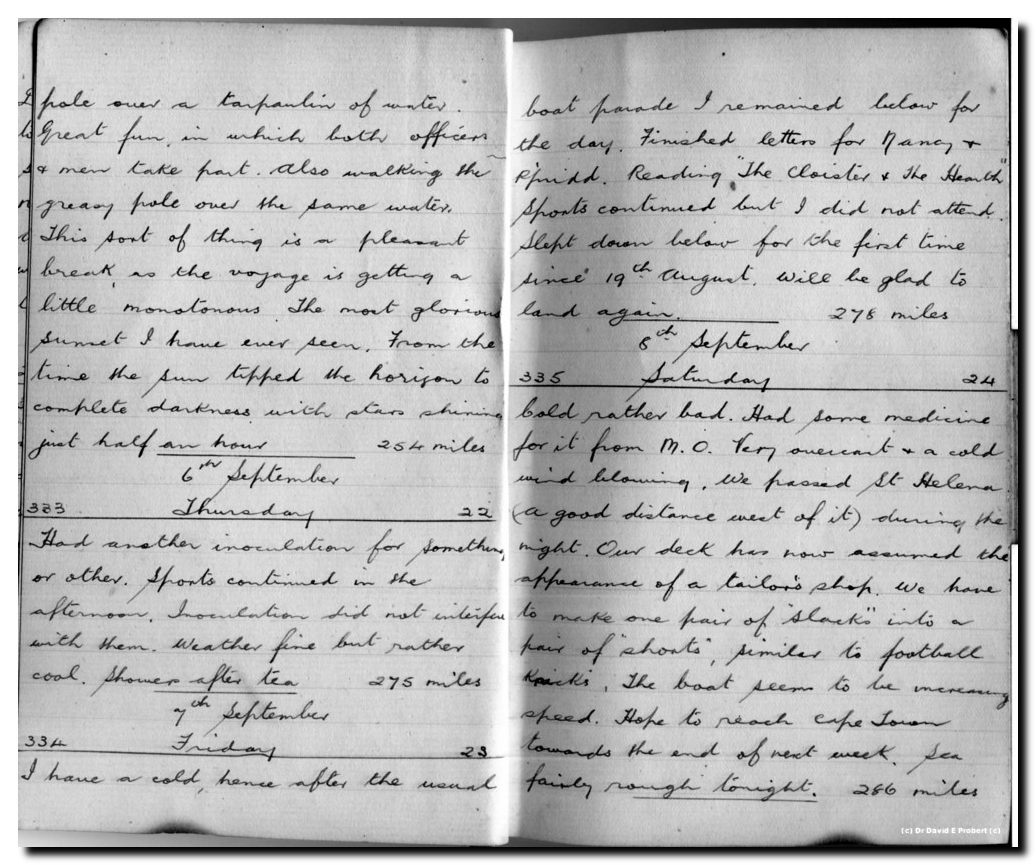 pole over a tarpaulin of water.
Great fun, in which both officers
& men take part. Also walking the
greasy pole over the same water.
This sort of thing is a pleasant
break, as the voyage is getting a
little monotonous. The most glorious
sunset I have ever seen. From the
time the sun tipped the horizon to
complete darkness with stars shining
just half an hour 254 miles
6th September
333 Thursday 22
Had another inoculation for something
or other. Sports continued in the
afternoon. Inoculation did not interfere
with them. Weather fine but rather
cool. Showers after tea 275 miles
7th September
334 Friday 23
I have a cold, hence after the usual
boat parade I remained below for
the day. Finished letters for Nancy &
P'pridd. Reading "The Cloister & the Hearth"
Sports continued but I did not attend.
Slept down below for the first time
since 19th August. Will be glad to
land again. 278 miles
8th September
335 Saturday 24
Cold rather bad. Had some medicine
for it from M.O. Very overcast & a cold
wind blowing. We passed St Helena
(a good distance west of it) during the
night. Our deck has now assumed the
appearance of a tailor's shop. We have
to make one pair of "slacks" into a
pair of "shorts", similar to football
knicks. The boat seems to be increasing
speed. Hope to reach Cape Town
towards the end of next week. Sea
fairly rough tonight. 286 miles
(c) Dr David E Probert (c)